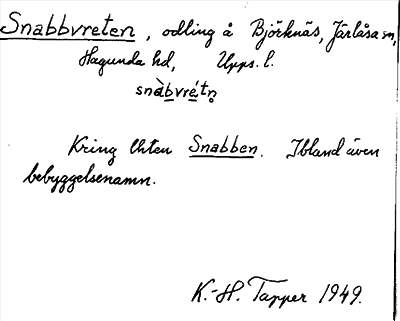 Snabbvreten, odling å Björknäs, Järlåsa sn,
Hagunda hd, Upps. l.
snàbvrétn̥
Kring lhten Snabben. Ibland även
bebyggelsenamn.
K.-H. Tapper 1949.